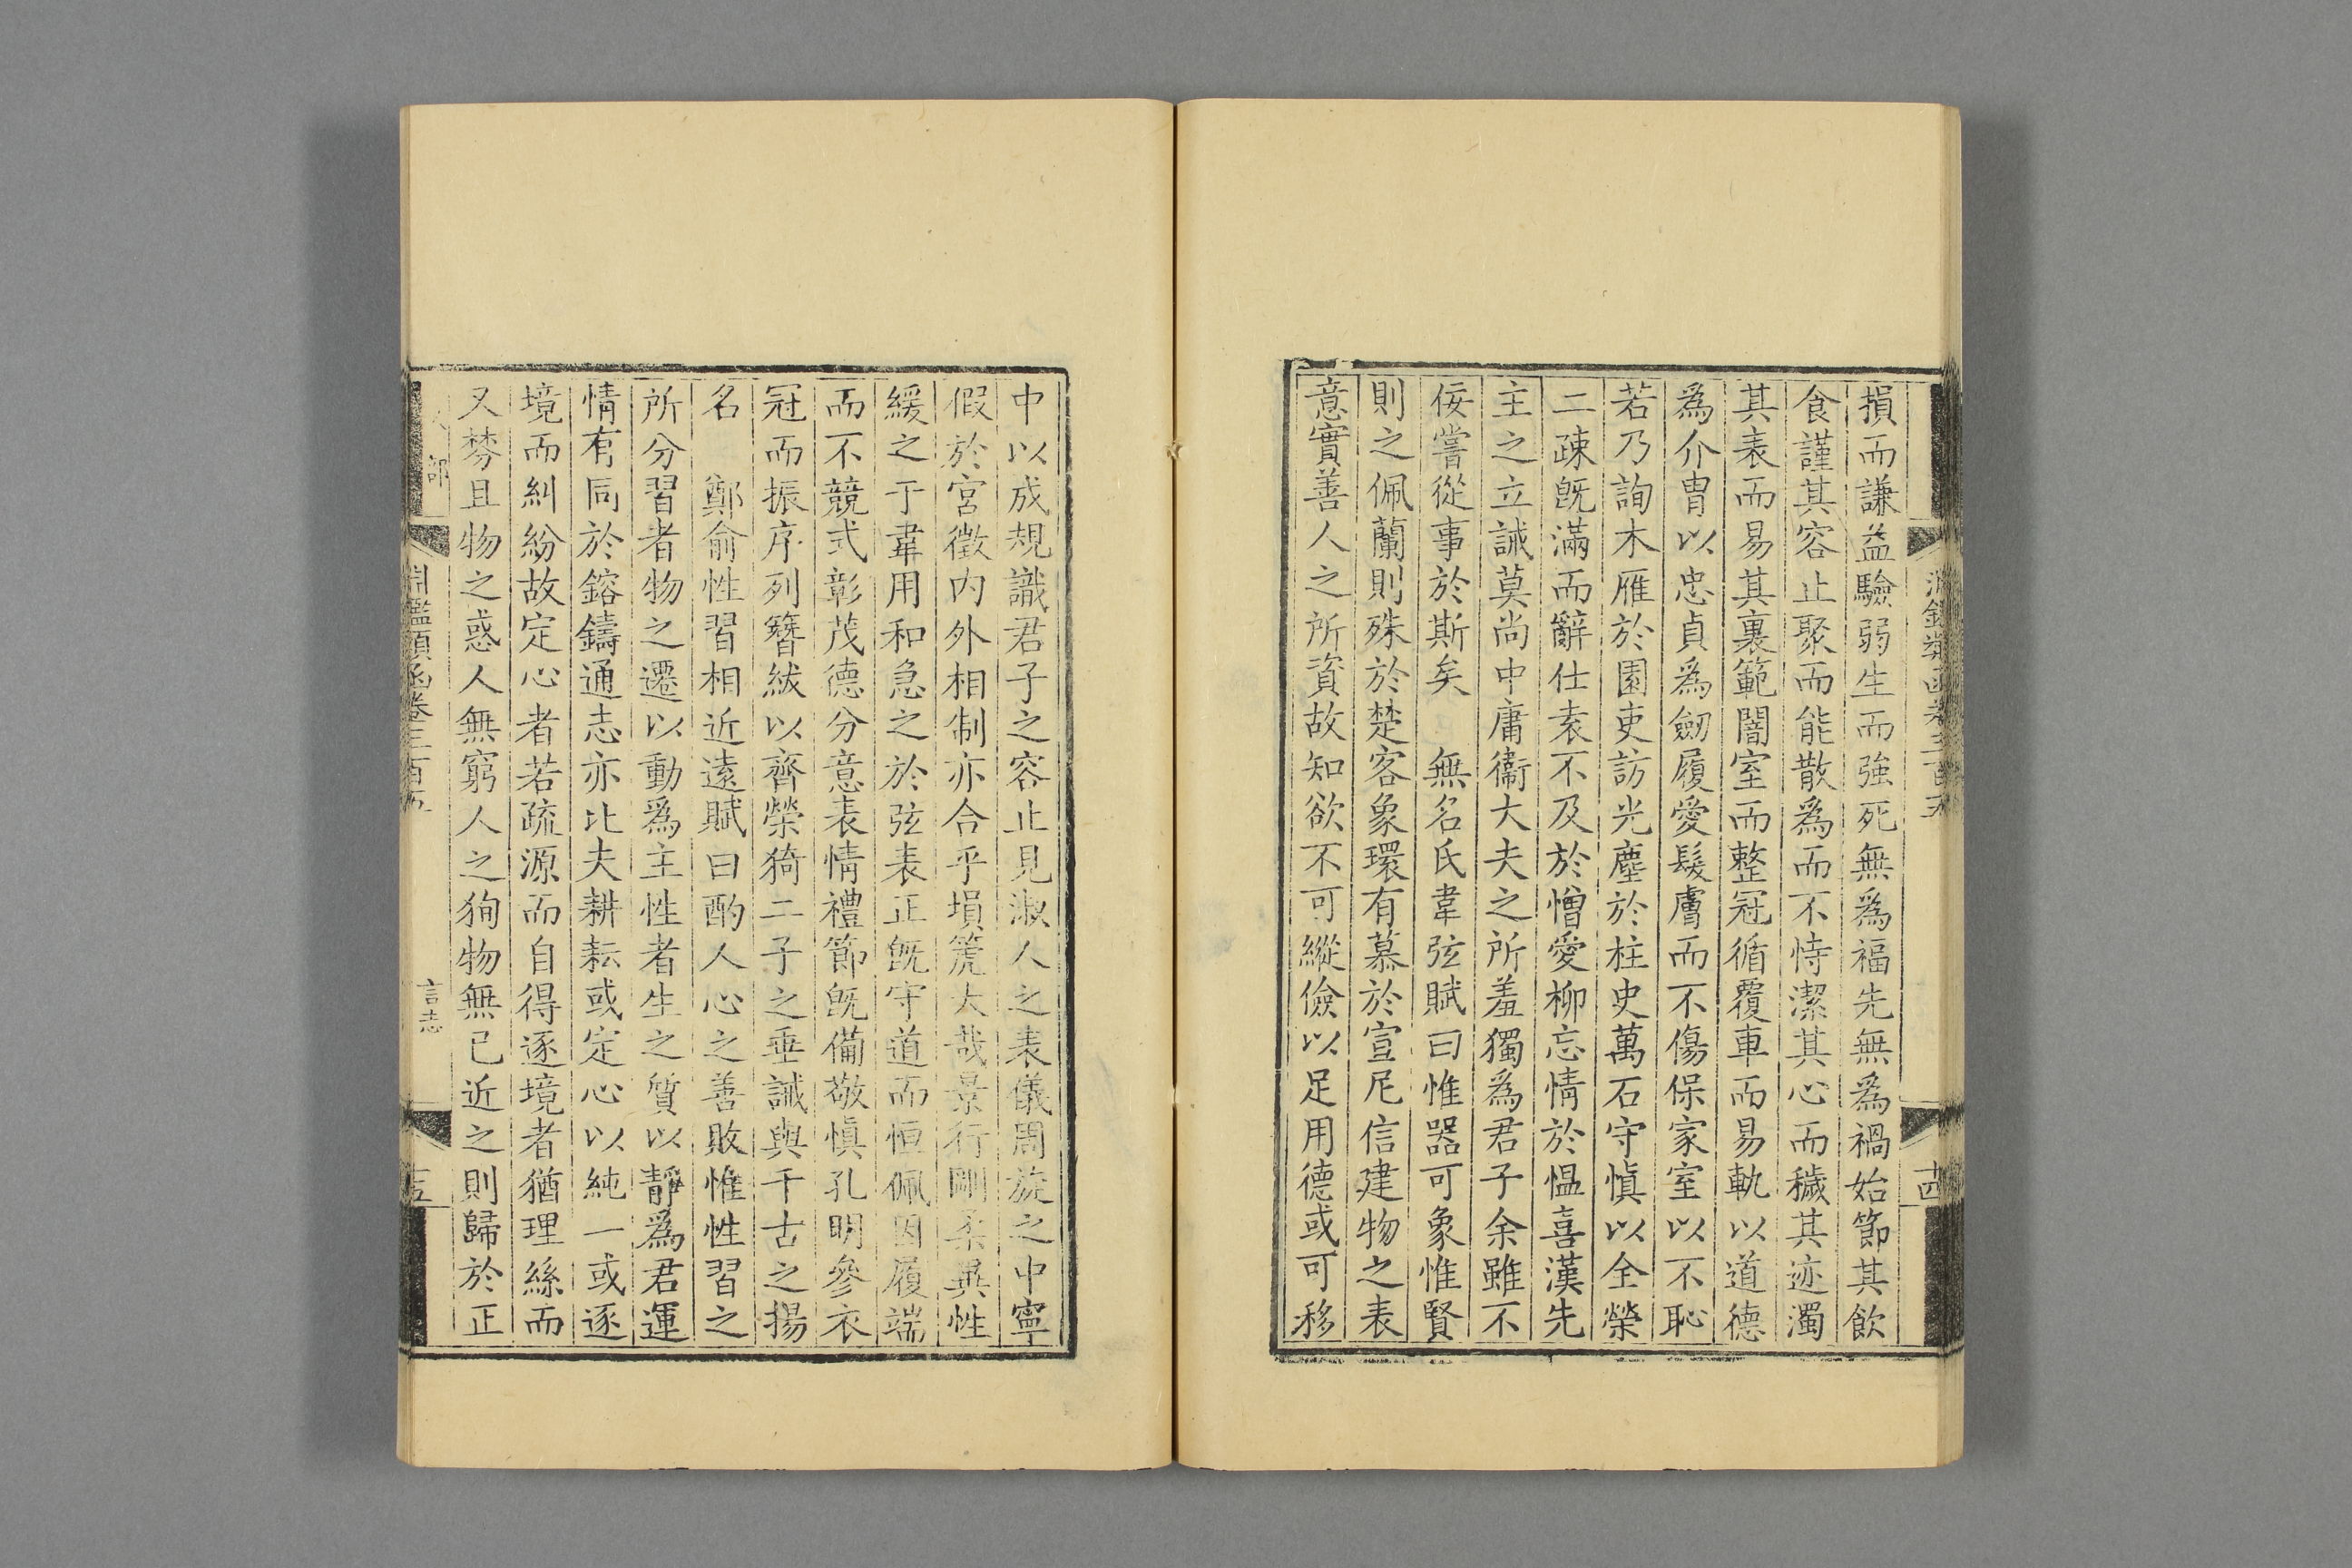 損而謙益驗弱生而強死無爲福先無爲禍始節其飲
食謹其容止聚而能散爲而不恃潔其心而穢其迹濁
其表而易其裏範闇室而整冠循覆車而易軌以道德
爲介胄以忠貞爲劒履愛髮膚而不傷保家室以不恥
若乃詢木雁於園吏訪光塵於柱史萬石守慎以全榮
二疎旣滿而辭仕袁不及於憎愛柳忘情於愠喜漢先
主之立誡莫尚中庸衞大夫之所羞獨爲君子余雖不
佞嘗從事於斯矣 無名氏韋弦賦曰惟器可象惟賢
則之佩蘭則殊於楚客象環有慕於宣尼信建物之表
意實善人之所資故知欲不可縱儉以足用德或可移
十四
中以成規識君子之容止見淑人之表儀周旋之中寧
假於宮徵内外相制亦合乎塤箎大哉景行剛柔異性
緩之于韋用和急之於弦表正旣守道而恒佩因履端
而不競式彰茂德分意表情禮節旣備敬慎孔明參衣
冠而振序列簪紱以齊榮猗二子之垂誡與千古之揚
名 鄭俞性習相近遠賦曰酌人心之善敗惟性習之
所分習者物之遷以動爲主性者生之質以靜爲君運
情有同於鎔鑄通志亦比夫耕耘或定心以純一或逐
境而糾紛故定心者若疏源而自得逐境者猶理絲而
又棼且物之惑人無窮人之狥物無已近之則歸於正
部 淵鑑類函卷三百五 言志 十五